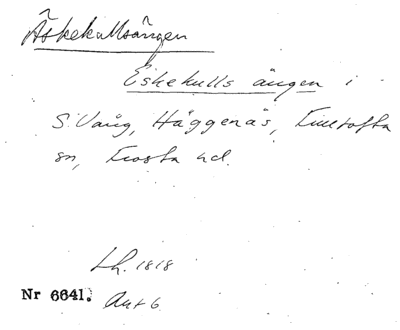 Äskekullsängen
Eskekulls ängen i
S. Vång, Häggenäs, Fulltofta
sn, Frosta hd.
Lh. 1818
Nr 6641. Akt 6